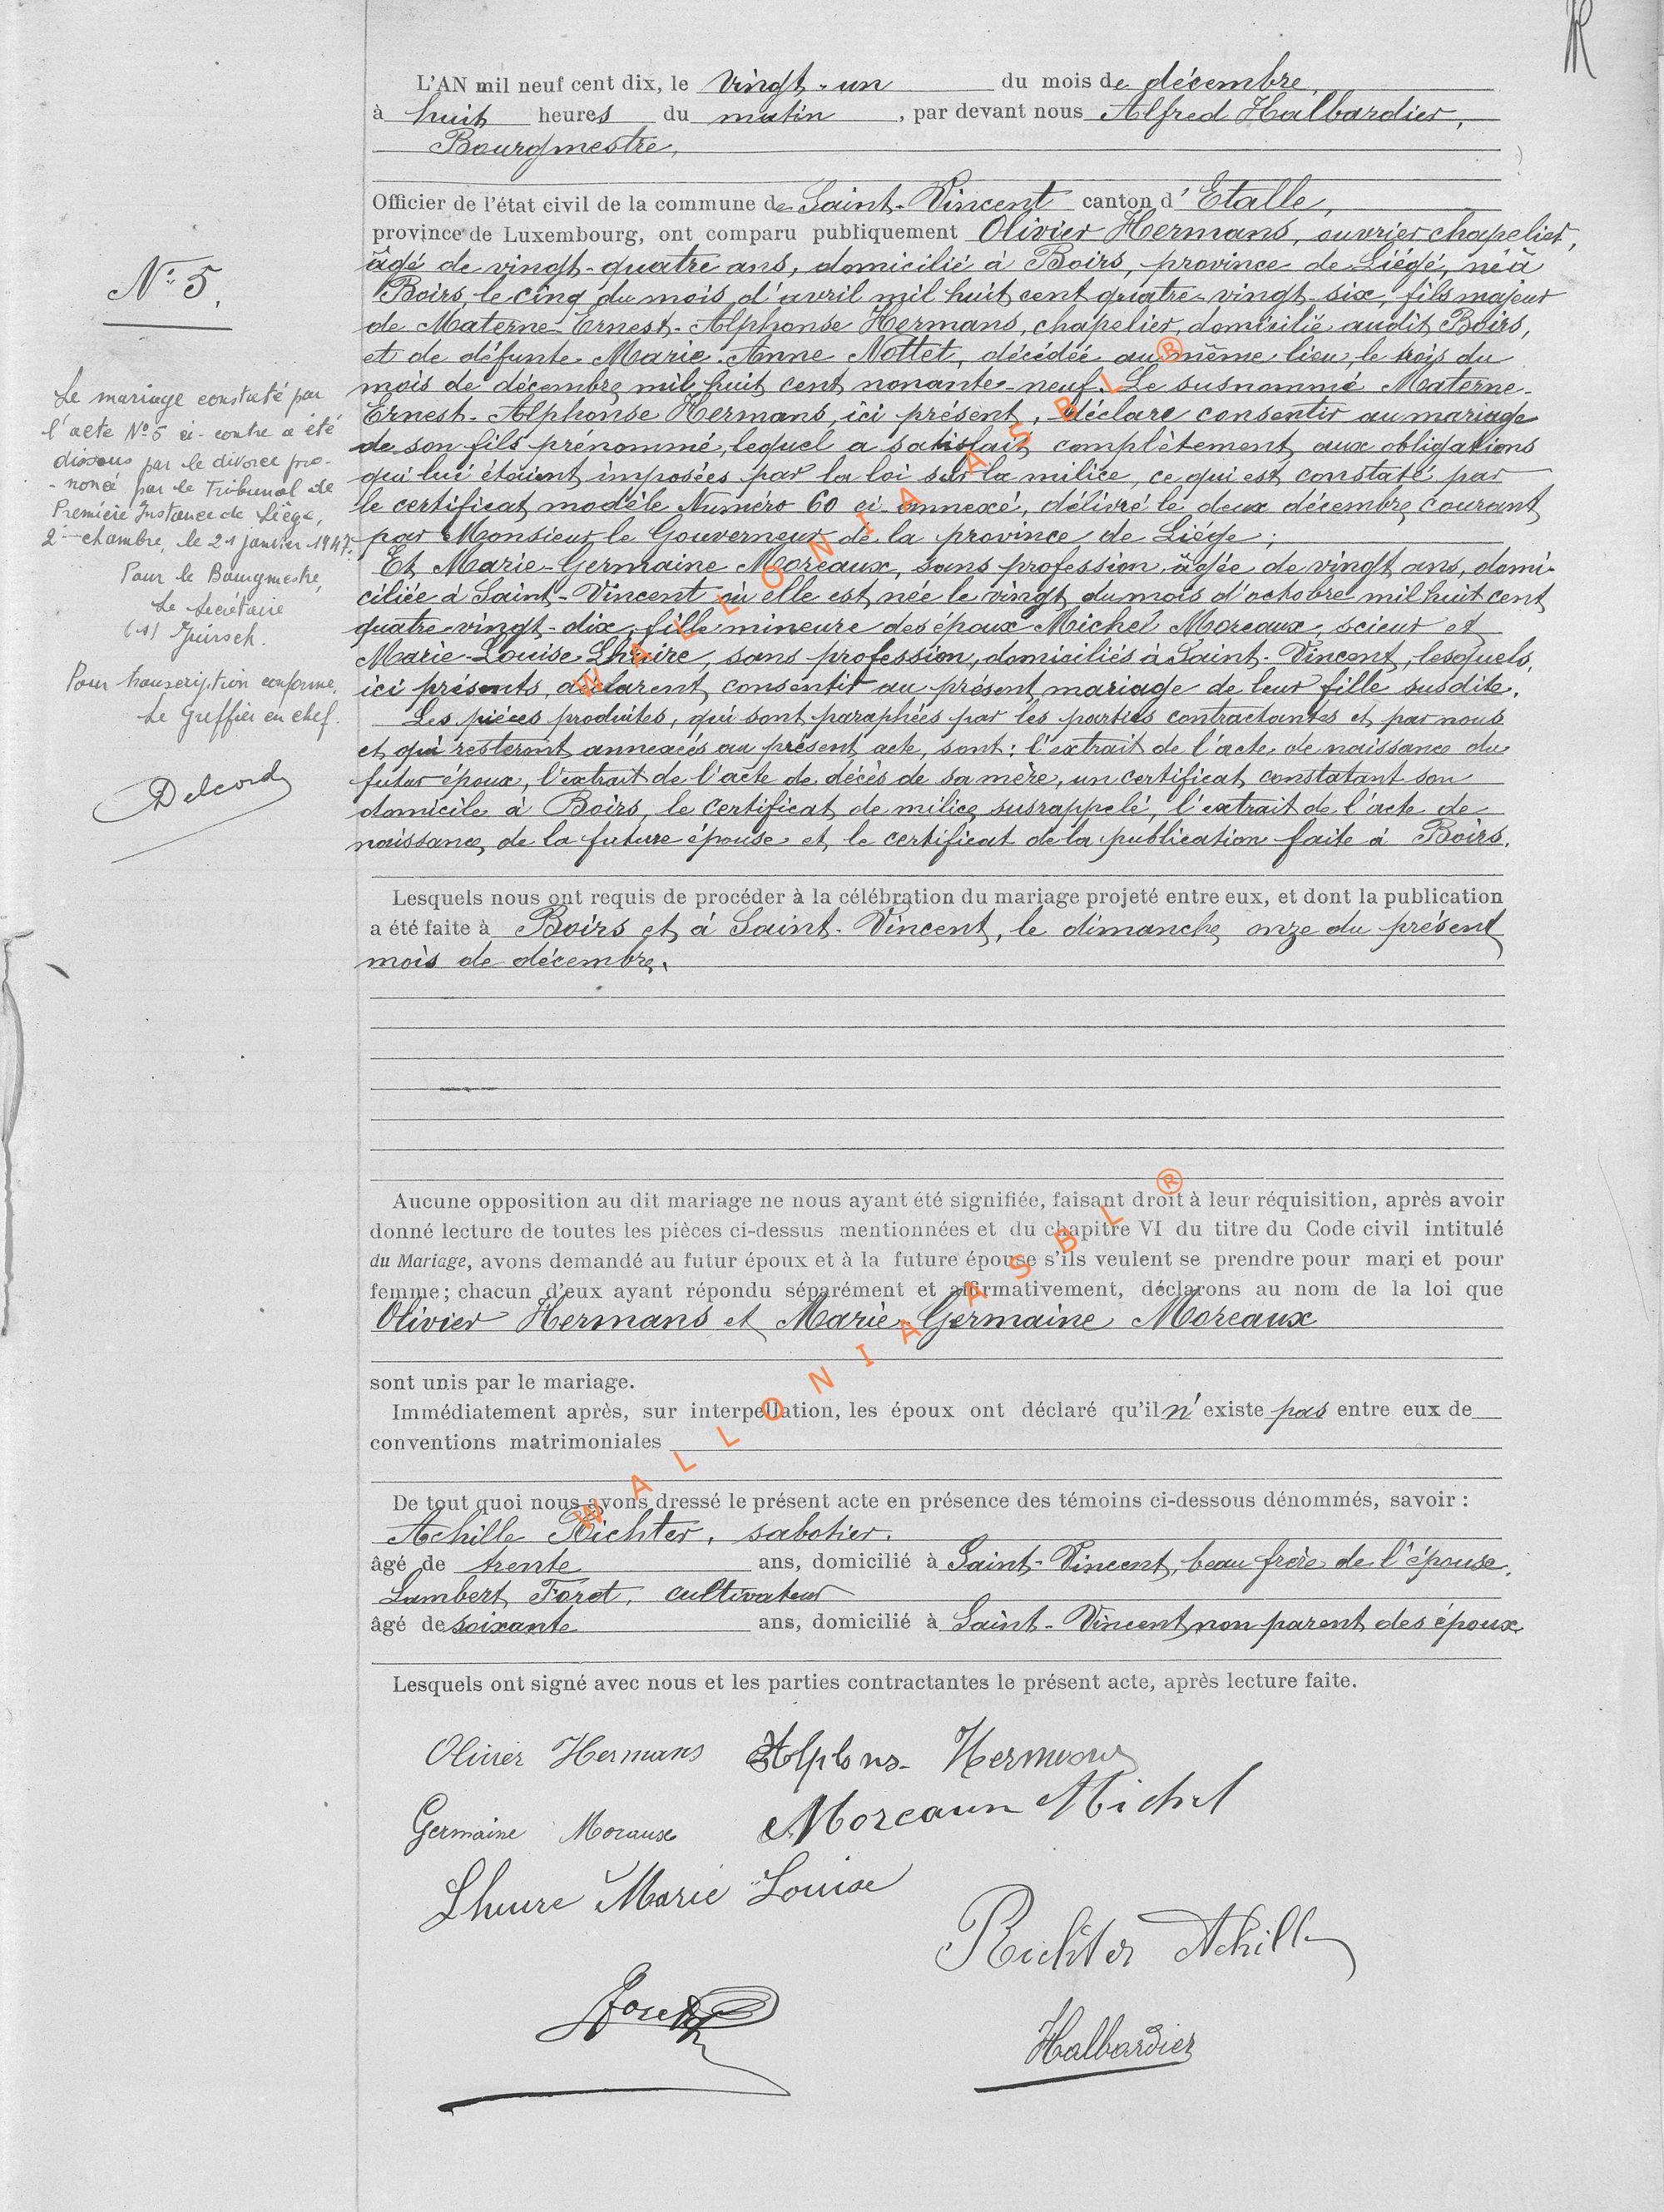 L'AN mil neuf cent dix, le vingt-un du mois de décembre,
à huit heures du matin, par devant nous Alfred Halbardier,
Bourgmestre,
Officier de l'état civil de la commune de Saint-Vincent canton d'Etalle,
province de Luxembourg, ont comparu publiquement Olivier Hermans, ouvrier chapelier,
âgé de vingt-quatre ans, domicilié à Boirs, province de Liége, né à
Boirs, le cinq du mois d'avril mil huit cent quatre-vingt-six, fils majeur
de Materne-Ernest-Alphonse Hermans, chapelier, domicilié audit Boirs,
et de défunte Marie-Anne Nottet, décédée au même lieu, le trois du
mois de décembre mil huit cent nonante-neuf. Le susnommé Materne-
Ernest-Alphonse Hermans, ici présent, déclare consentir au mariage
de son fils prénommé, lequel a satisfait complètement aux obligations
qui lui étaient imposées par la loi sur la milice, ce qui est constaté par
le certificat modèle Numéro 60 ci-annexé, délivré le deux décembre courant
par Monsieur le Gouverneur de la province de Liége;
Et Marie-Germaine Moreaux, sans profession, âgée de vingt ans, domi-
ciliée à Saint-Vincent où elle est née le vingt du mois d'octobre mil huit cent
quatre-vingt-dix, fille mineure des époux Michel Moreaux, scieur et
Marie-Louise Lhuire, sans profession, domiciliés à Saint-Vincent, lesquels,
ici présents, déclarent consentir au présent mariage de leur fille susdite.
Les pièces produites, qui sont paraphées par les parties contractantes et par nous
et qui resteront annexées au présent acte, sont: l'extrait de l'acte de naissance du
futur époux, l'extrait de l'acte de décès de sa mère, un certificat constatant son
domicile à Boirs, le certificat de milice susrappelé, l'extrait de l'acte de
naissance de la future épouse et le certificat de la publication faite à Boirs.
Lesquels nous ont requis de procéder à la célébration du mariage projeté entre eux, et dont la publication
a été faite à Boirs et à Saint-Vincent, le dimanche onze du présent
mois de décembre.
Aucune opposition au dit mariage ne nous ayant été signifiée, faisant droit à leur réquisition, après avoir
donné lecture de toutes les pièces ci-dessus mentionnées et du chapitre VI du titre du Code civil intitulé
du Mariage, avons demandé au futur époux et à la future épouse s'ils veulent se prendre pour mari et pour
femme; chacun d'eux ayant répondu séparément et affirmativement, déclarons au nom de la loi que
Olivier Hermans et Marie-Germaine Moreaux
sont unis par le mariage.
Immédiatement après, sur interpellation, les époux ont déclaré qu'il n'existe pas entre eux de
conventions matrimoniales
De tout quoi nous avons dressé le présent acte en présence des témoins ci-dessous dénommés, savoir :
Achille Richter, sabotier,
âgé de trente ans, domicilié à Saint-Vincent, beau frère de l'épouse.
Lambert Foret, cultivateur
âgé de soixante ans, domicilié à Saint-Vincent, non parent des époux.
Lesquels ont signé avec nous et les parties contractantes le présent acte, après lecture faite.
Olivier Hermans Alphons Hermans
Germaine Moraux Moreaux Michel
Lhuire Marie Louise
Richter Achille
Foret
Halbardier
N° 5.
Le mariage constaté par
l'acte N° 5 ci-contre a été
dissous par le divorce pro-
-noncé par le Tribunal de
Première Instance de Liège,
2e chambre, le 21 janvier 1947.
Pour le Bourgmestre,
Le Secrétaire
Pour transcription conforme,
Le Greffier en chef.
Delcord
WALLONIA ASBL ®
WALLONIA ASBL ®